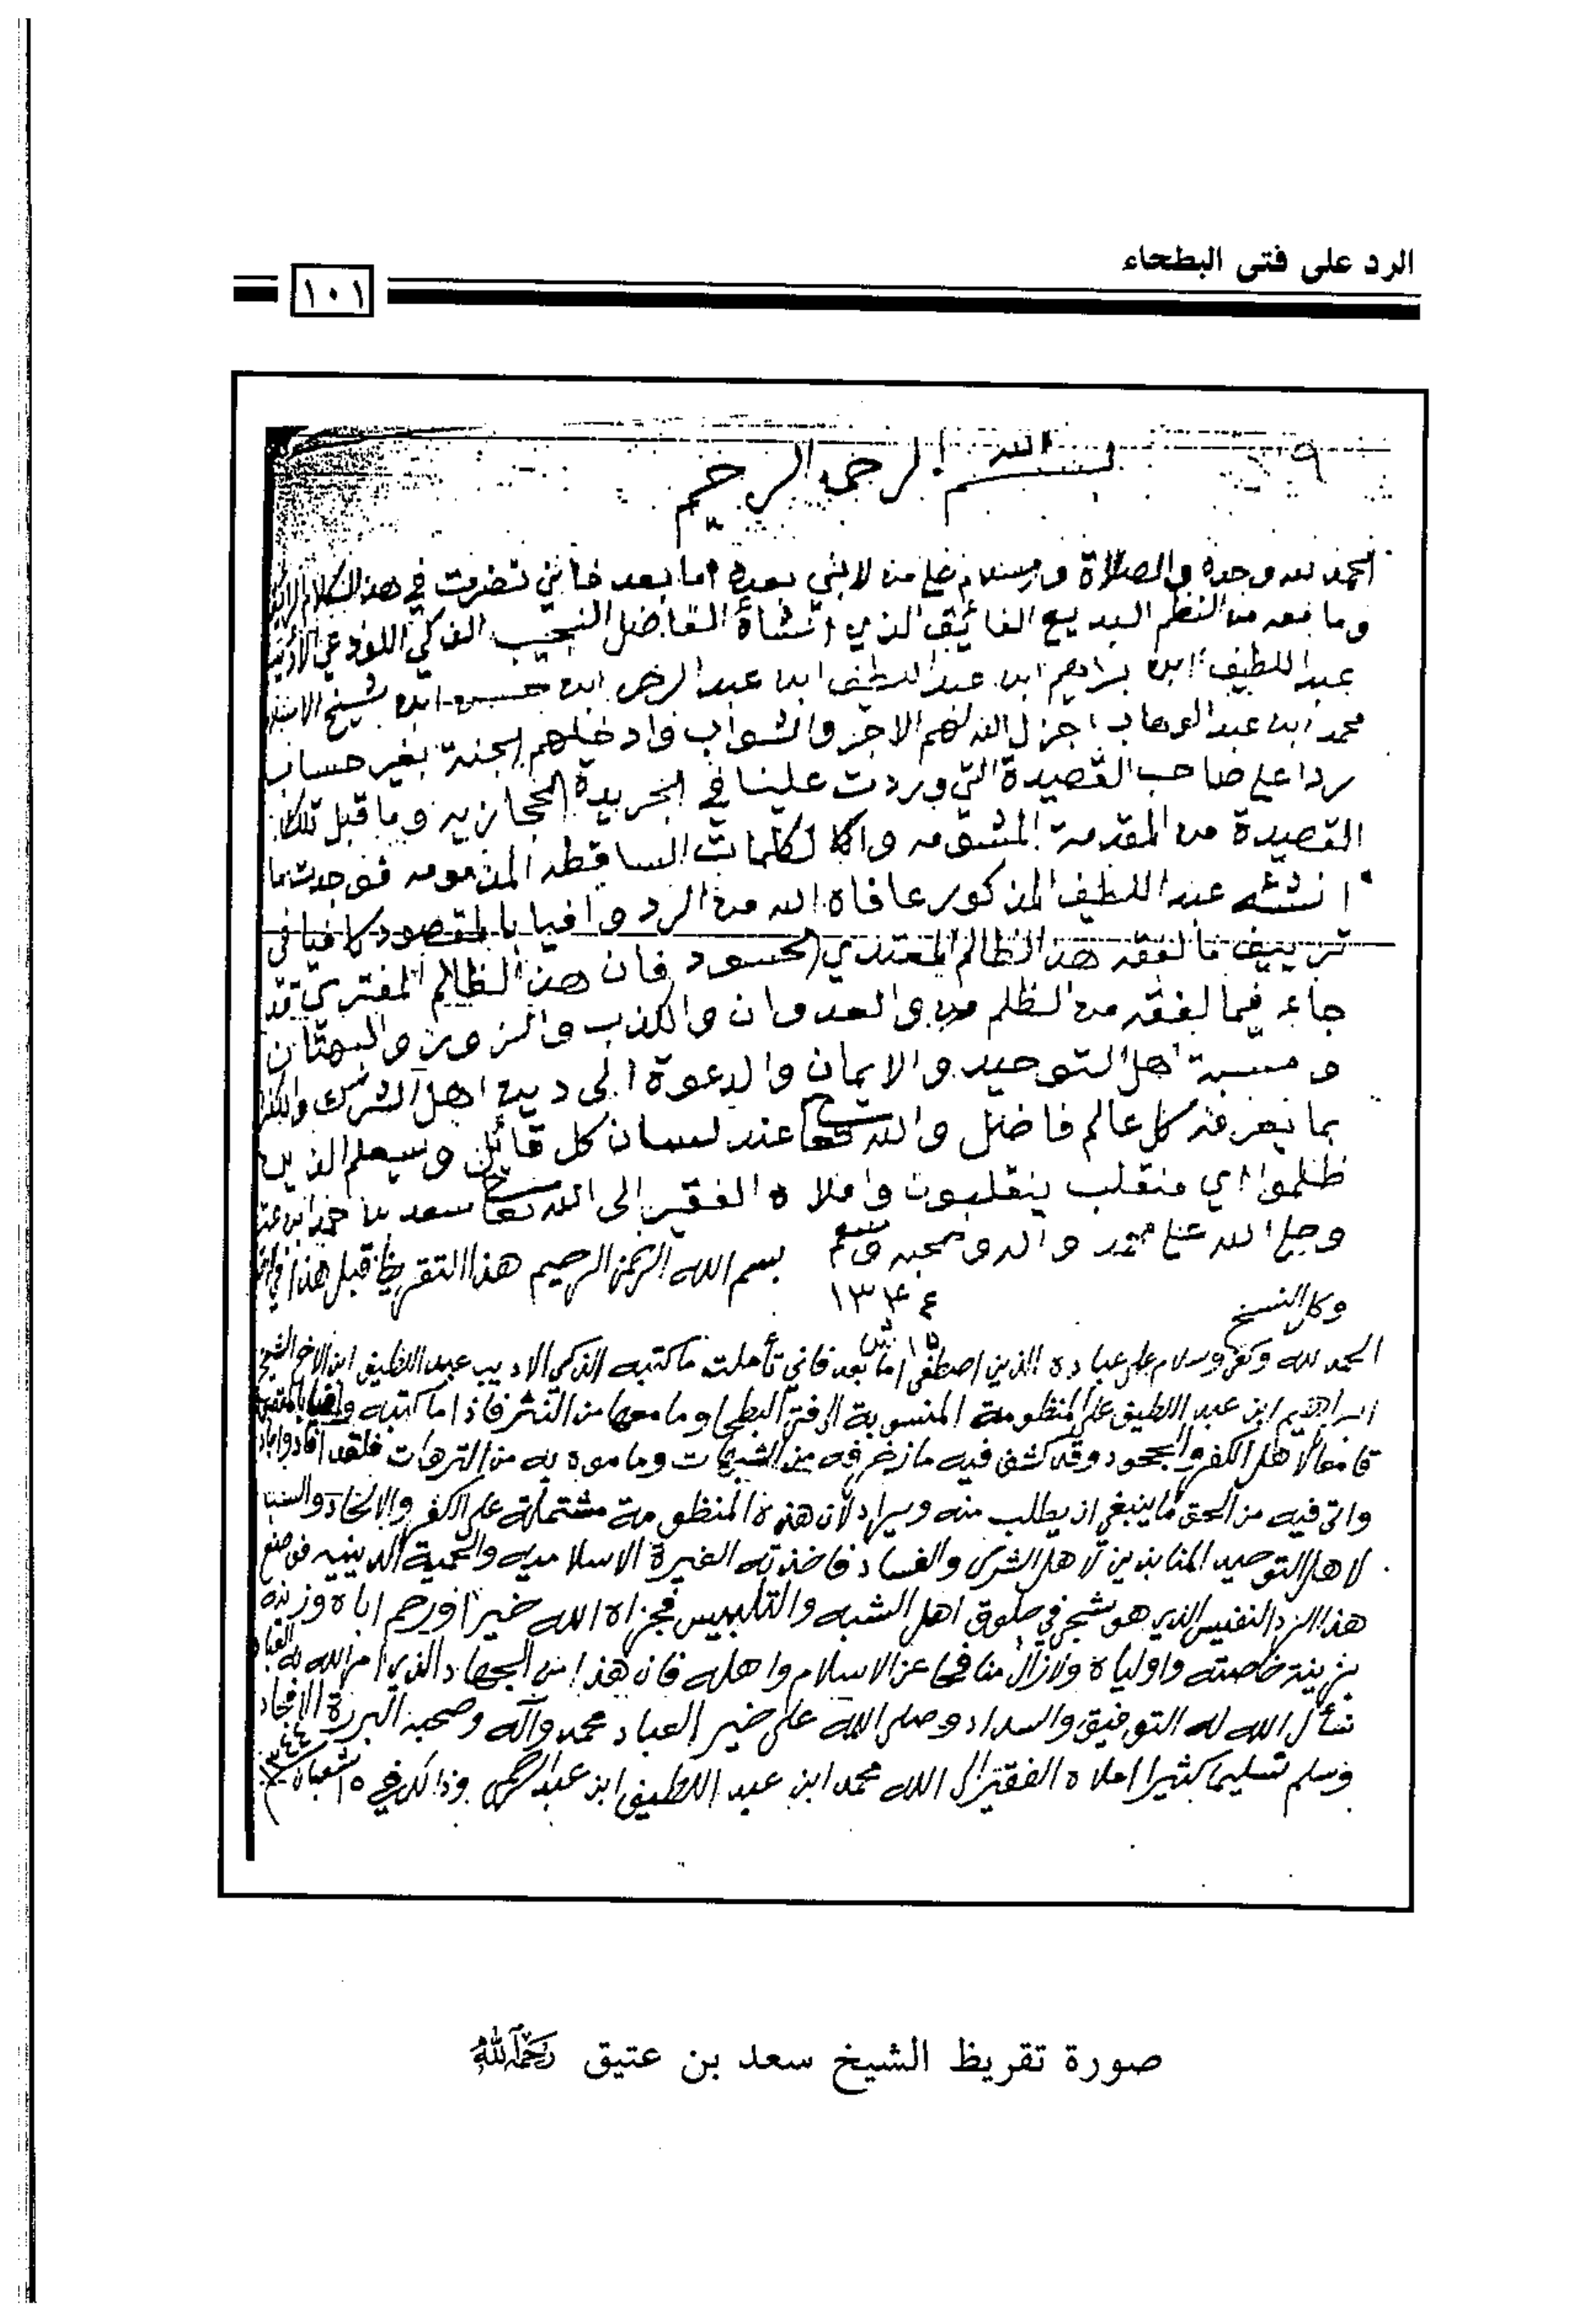 الرد على فتى البطحاء
١٠١
بسم الله الرحمن الرحيم
الحمد لله وحده والصلاة والسلام على من لا نبي بعده اما بعد فاني نضرت في هذا الكلام
وما معه من النظم البديع الفائق الذي انشأه الفاضل النجيب الذكي اللوذعي الأديب
عبد اللطيف ابن ابراهيم ابن عبد اللطيف ابن عبد الرحمن ابن حسن ابن شيخ الاسلام
محمد ابن عبد الوهاب اجزل الله لهم الاجر والثواب وادخلهم الجنة بغير حساب
ردا على صاحب القصيدة التي وردت علينا في الجريدة الحجازيه وما قبل تلك
القصيدة من المقدمة المشومه والكلمات الساقطه المذمومه فوجدت ما
انشئه عبد اللطيف المذكور عافاه الله من الرد وافيا بالمقصود كافيا في
تزييف ما لفقه هذا الظالم المعتدي الحسود فان هذا الظالم المفتري قد
جاء فيما لفقه من الظلم والعدوان والكذب والزور والبهتان
ومسبة اهل التوحيد والايمان والدعوة الى دين اهل الشرك والكفر
بما يعرفه كل عالم فاضل والله تعالى عند لسان كل قائل وسيعلم الذين
ظلموا اي منقلب ينقلبون واملاه الفقير الى الله تعالى سعد بن حمد ابن عتيق
وصلى الله على محمد واله وصحبه وسلم
١٣٤٤
١٥ ش
بسم الله الرحمن الرحيم هذا التقريظ قبل هذا في
وكل النسخ
الحمد لله وكفى وسلام على عباده الذين اصطفى اما بعد فاني تأملت ما كتبه الذكي الاديب عبد اللطيف ابن الاخ الشيخ
ابراهيم ابن عبد اللطيف على المنظومة المنسوبة الى فتى البطحا وما معها من النثر فاذا ما كتبه وافيا بالمقصود
قامعا لأهل الكفر والجحود وقد كشف فيه ما زخرفه من الشبهات وما موه به من الترهات فلقد افاد واجاد
واتى فيه من الحق ما ينبغي ان يطلب منه ويراد لأن هذه المنظومة مشتملة على الكفر والالحاد والسب
لاهل التوحيد المنابذين لاهل الشرك والفساد فاخذته الغيرة الاسلاميه والحمية الدينيه فوضع
هذا الرد النفيس الذي هو شجى في حلوق اهل الشبه والتلبيس فجزاه الله خيرا ورحم اباه وزينه
بزينة خاصته واولياه ولازال منافحا عن الاسلام واهله فان هذا من الجهاد الذي امر الله به العباد
نسأل الله له التوفيق والسداد وصلى الله على خير العباد محمد وآله وصحبه البررة الامجاد
وسلم تسليما كثيرا املاه الفقير الى الله محمد ابن عبد اللطيف ابن عبد الرحمن وذلك في ١٥ شعبان ١٣٤٤
صورة تقريظ الشيخ سعد بن عتيق رحمه الله